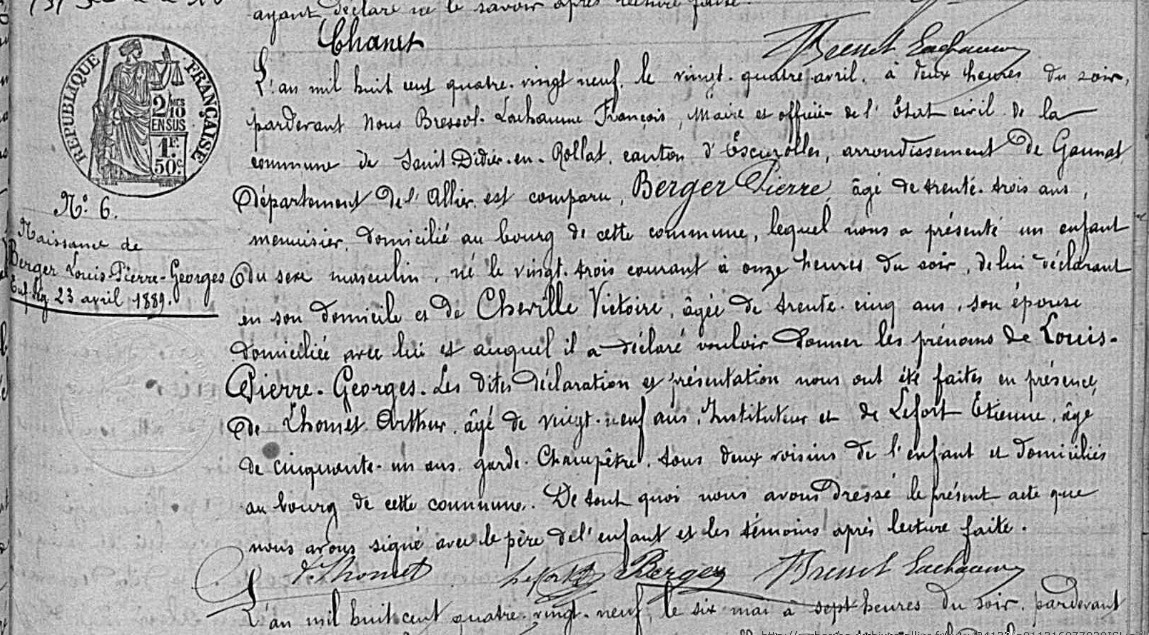 ayant déclaré ne le savoir après lecture faite.
Chanet
Bressot Lachaume
RÉPUBLIQUE FRANÇAISE
2/10
EN SUS
1F
50c
L'an mil huit cent quatre-vingt neuf, le vingt-quatre avril, à deux heures du soir,
pardevant Nous Bressot-Lachaume François, Maire et officier de l'État civil de la
commune de Saint-Didier-en-Rollat, canton d'Escurolles, arrondissement de Gannat
Département de l'Allier est comparu, Berger Pierre, âgé de trente-trois ans,
N° 6.
Naissance de
Berger Louis-Pierre-Georges
23 avril 1889.
menuisier, domicilié au bourg de cette commune, lequel nous a présenté un enfant
du sexe masculin, né le vingt-trois courant à onze heures du soir, de lui déclarant
en son domicile et de Cheville Victoire, âgée de trente-cinq ans, son épouse
domiciliée avec lui et auquel il a déclaré vouloir donner les prénoms de Louis-
Pierre-Georges. Les dites déclaration et présentation nous ont été faites en présence
de Thomet Arthur, âgé de vingt-neuf ans, Instituteur et de Lefort Etienne, âgé
de cinquante-un ans, garde-Champêtre, tous deux voisins de l'enfant et domiciliés
au bourg de cette commune. De tout quoi nous avons dressé le présent acte que
nous avons signé avec le père de l'enfant et les témoins après lecture faite.
Thomet Lefort Berger Bressot Lachaume
L'an mil huit cent quatre-vingt-neuf, le six mai à sept heures du soir, pardevant